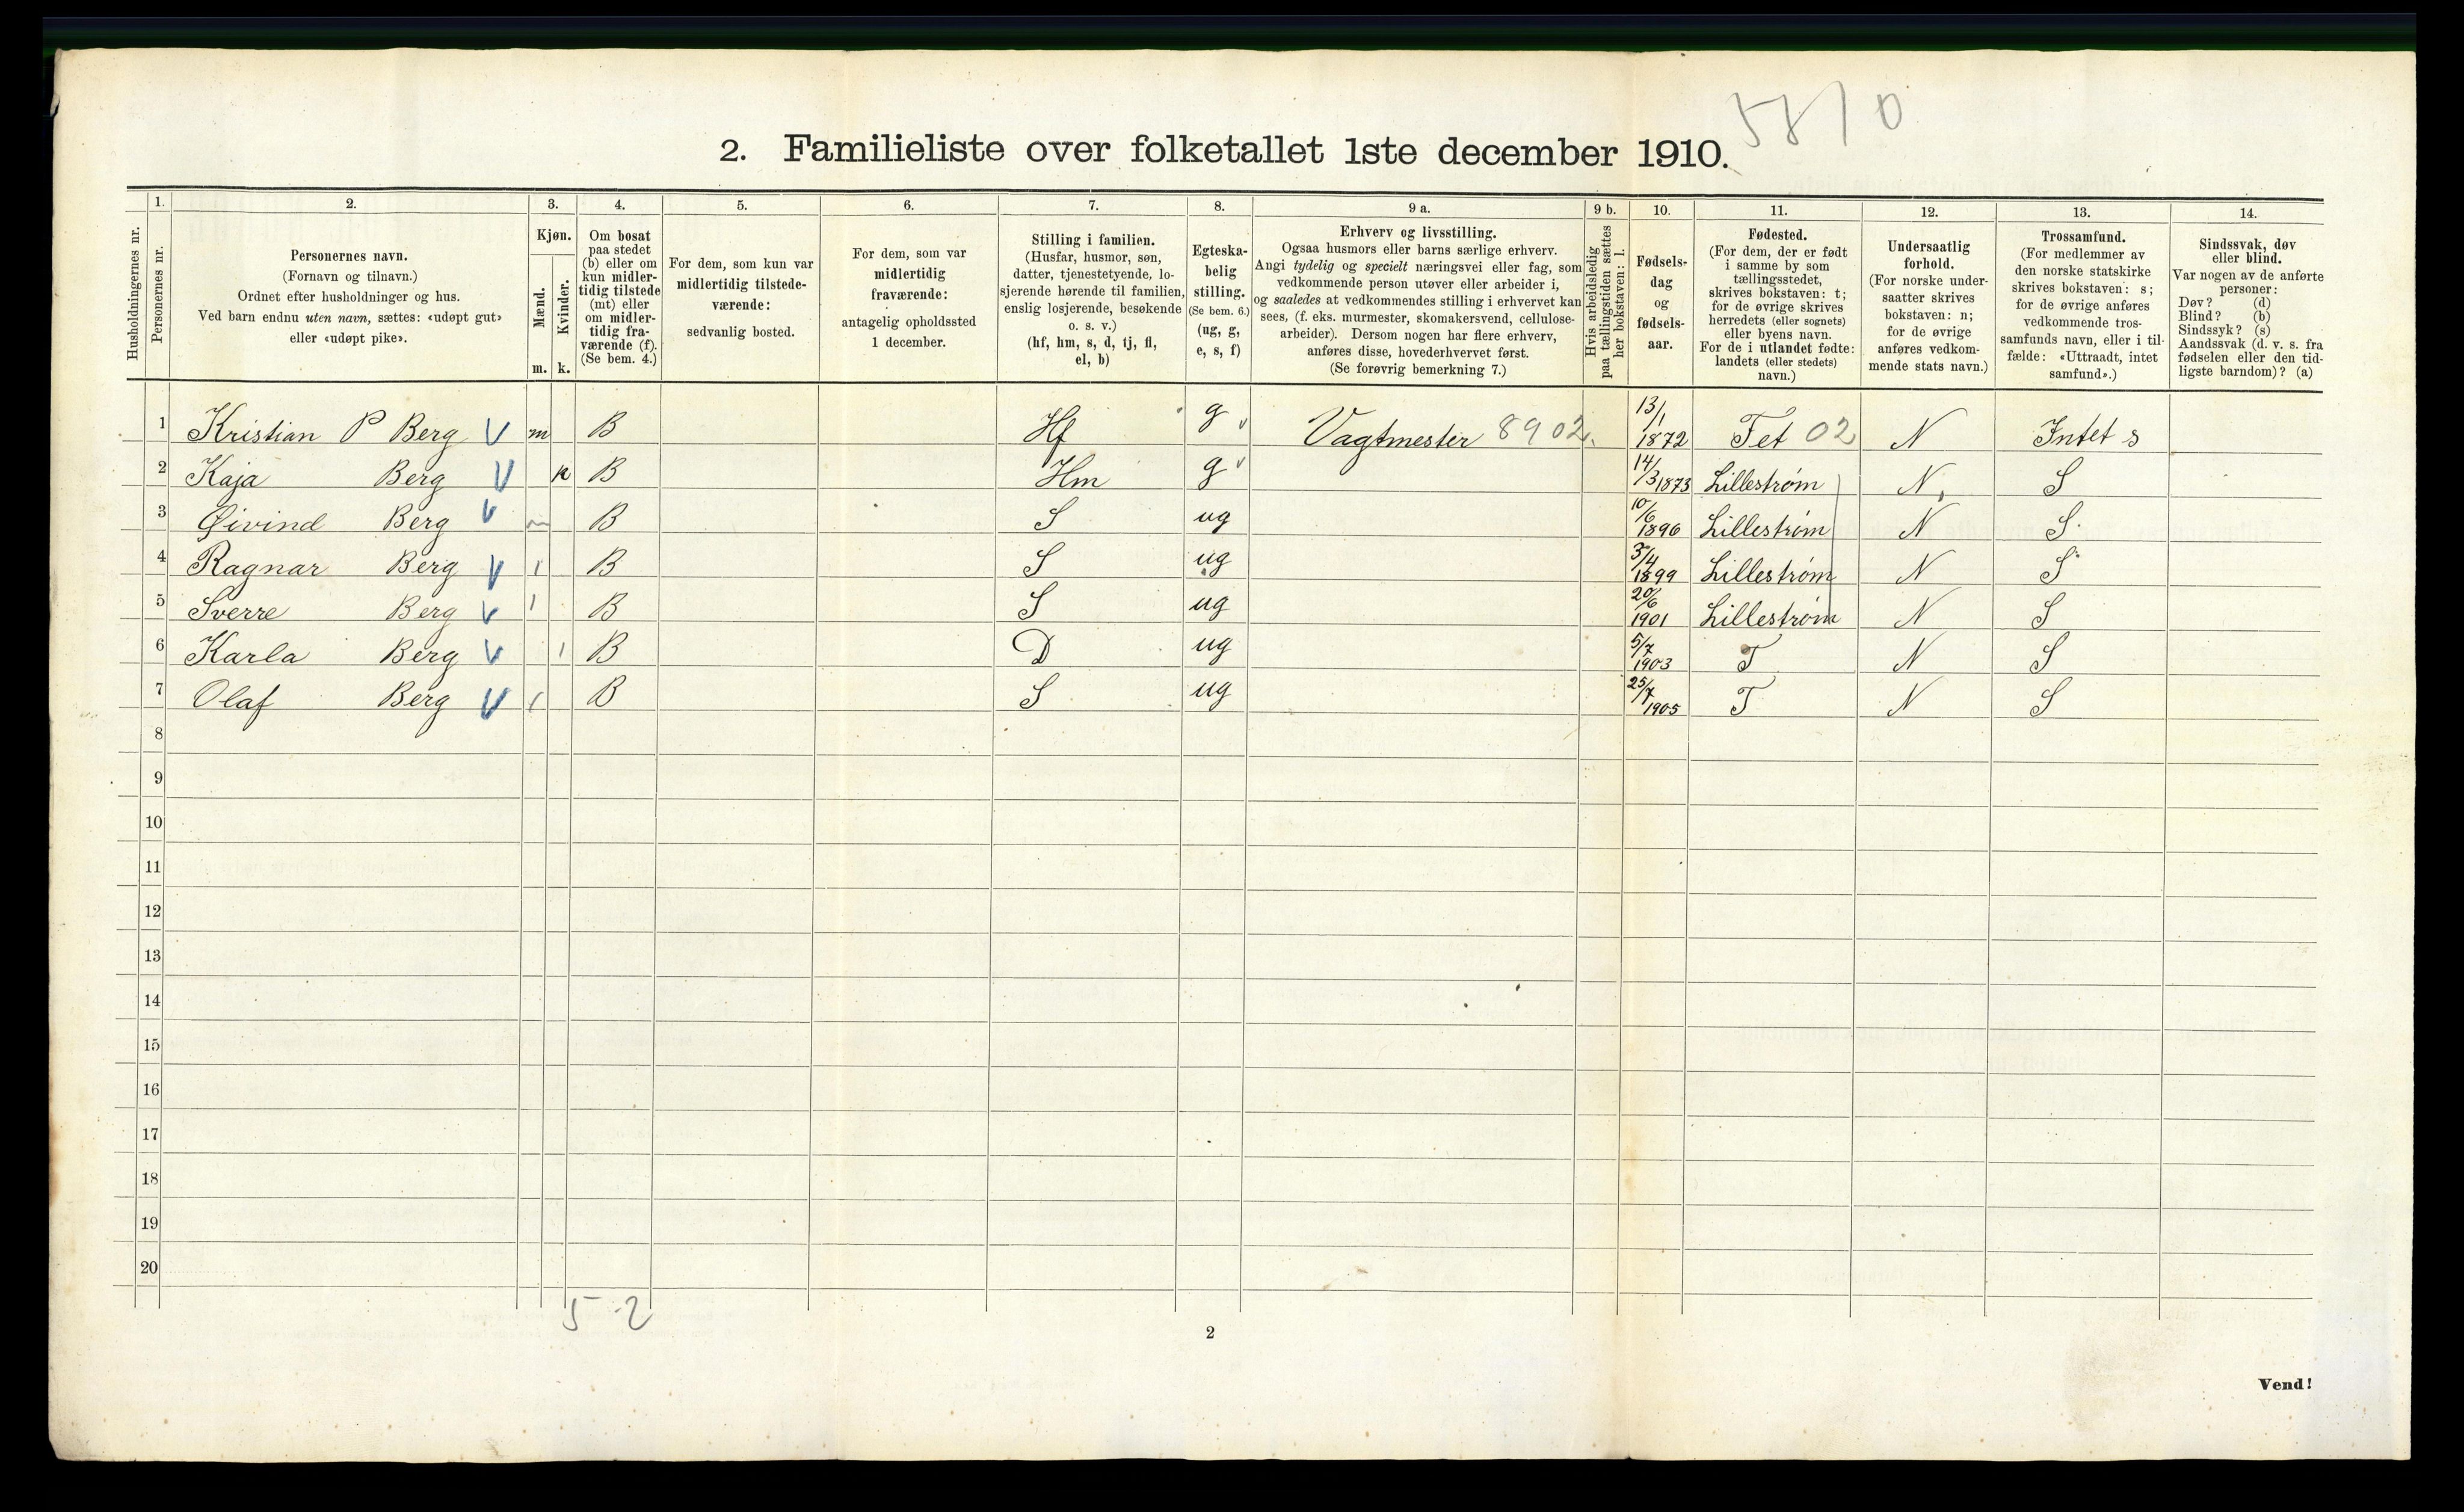 5810
2. Familieliste over folketallet 1ste december 1910.
Husholdningernes nr.
1. Personernes nr.
2. Personernes navn.
(Fornavn og tilnavn.)
Ordnet efter husholdninger og hus.
Ved barn endnu uten navn, sættes: «udøpt gut»
eller «udøpt pike».
3. Kjøn.
Mænd. m.
Kvinder. k.
4. Om bosat
paa stedet
(b) eller om
kun midler-
tidig tilstede
(mt) eller
om midler-
tidig fra-
værende (f).
(Se bem. 4.)
5. For dem, som kun var
midlertidig tilstede-
værende:
sedvanlig bosted.
6. For dem, som var
midlertidig
fraværende:
antagelig opholdssted
1 december.
7. Stilling i familien.
(Husfar, husmor, søn,
datter, tjenestetyende, lo-
sjerende hørende til familien,
enslig losjerende, besøkende
o. s. v.)
(hf, hm, s, d, tj, fl,
el, b)
8. Egteska-
belig
stilling.
(Se bem. 6.)
(ug, g,
e, s, f)
9 a. Erhverv og livsstilling.
Ogsaa husmors eller barns særlige erhverv.
Angi tydelig og specielt næringsvei eller fag, som
vedkommende person utøver eller arbeider i,
og saaledes at vedkommendes stilling i erhvervet kan
sees, (f. eks. murmester, skomakersvend, cellulose-
arbeider). Dersom nogen har flere erhverv,
anføres disse, hovederhvervet først.
(Se forøvrig bemerkning 7.)
9 b. Hvis arbeidsledig
paa tællingstiden sættes
her bokstaven: l.
10. Fødsels-
dag
og
fødsels-
aar.
11. Fødested.
(For dem, der er født
i samme by som
tællingsstedet,
skrives bokstaven: t;
for de øvrige skrives
herredets (eller sognets)
eller byens navn.
For de i utlandet fødte:
landets (eller stedets)
navn.)
12. Undersaatlig
forhold.
(For norske under-
saatter skrives
bokstaven: n;
for de øvrige
anføres vedkom-
mende stats navn.)
13. Trossamfund.
(For medlemmer av
den norske statskirke
skrives bokstaven: s;
for de øvrige anføres
vedkommende tros-
samfunds navn, eller i til-
fælde: «Uttraadt, intet
samfund».)
14. Sindssvak, døv
eller blind.
Var nogen av de anførte
personer:
Døv? (d)
Blind? (b)
Sindssyk? (s)
Aandssvak (d. v. s. fra
fødselen eller den tid-
ligste barndom)? (a)
1 Kristian P Berg V m B Hf g v Vagtmester 8902. 13/1 1872 Fet 02 N Intet s
2 Kaja Berg V k B Hm g v 14/3 1873 Lillestrøm N. S
3 Øivind Berg V m B S ug 10/6 1896 Lillestrøm N S.
4 Ragnar Berg V 1 B S ug 1899 Lillestrøm N S
5 Sverre Berg V 1 B S ug 20/6 1901 Lillestrøm N S
6 Karla Berg V 1 B D ug 5/7 1903 T N S
7 Olaf Berg V 1 B S ug 25/7 1905 T N S
8
9
10
11
12
13
14
15
16
17
18
19
20
5-2
2
Vend!